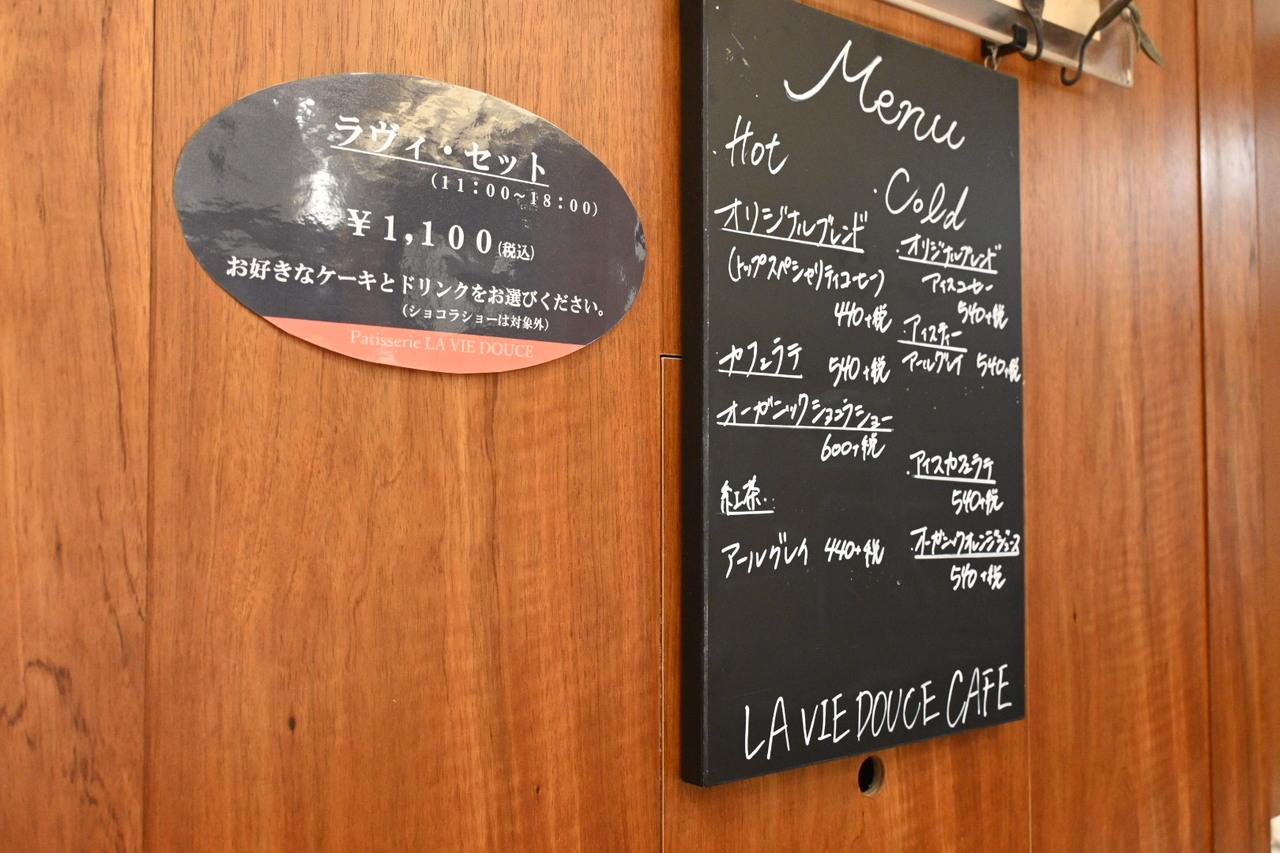 ラヴィ・セット
(11:00~18:00)
¥1,100(税込)
お好きなケーキとドリンクをお選びください。
(ショコラショーは対象外)
Patisserie LA VIE DOUCE
Menu
・Hot
オリジナルブレンド
(トップスペシャリティコーヒー)
440+税
カフェラテ 540+税
オーガニックショコラショー
600+税
紅茶
アールグレイ 440+税
・Cold
・オリジナルブレンド
アイスコーヒー
540+税
・アイスティー
アールグレイ 540+税
・アイスカフェラテ
540+税
・オーガニックオレンジジュース
540+税
LA VIE DOUCE CAFE